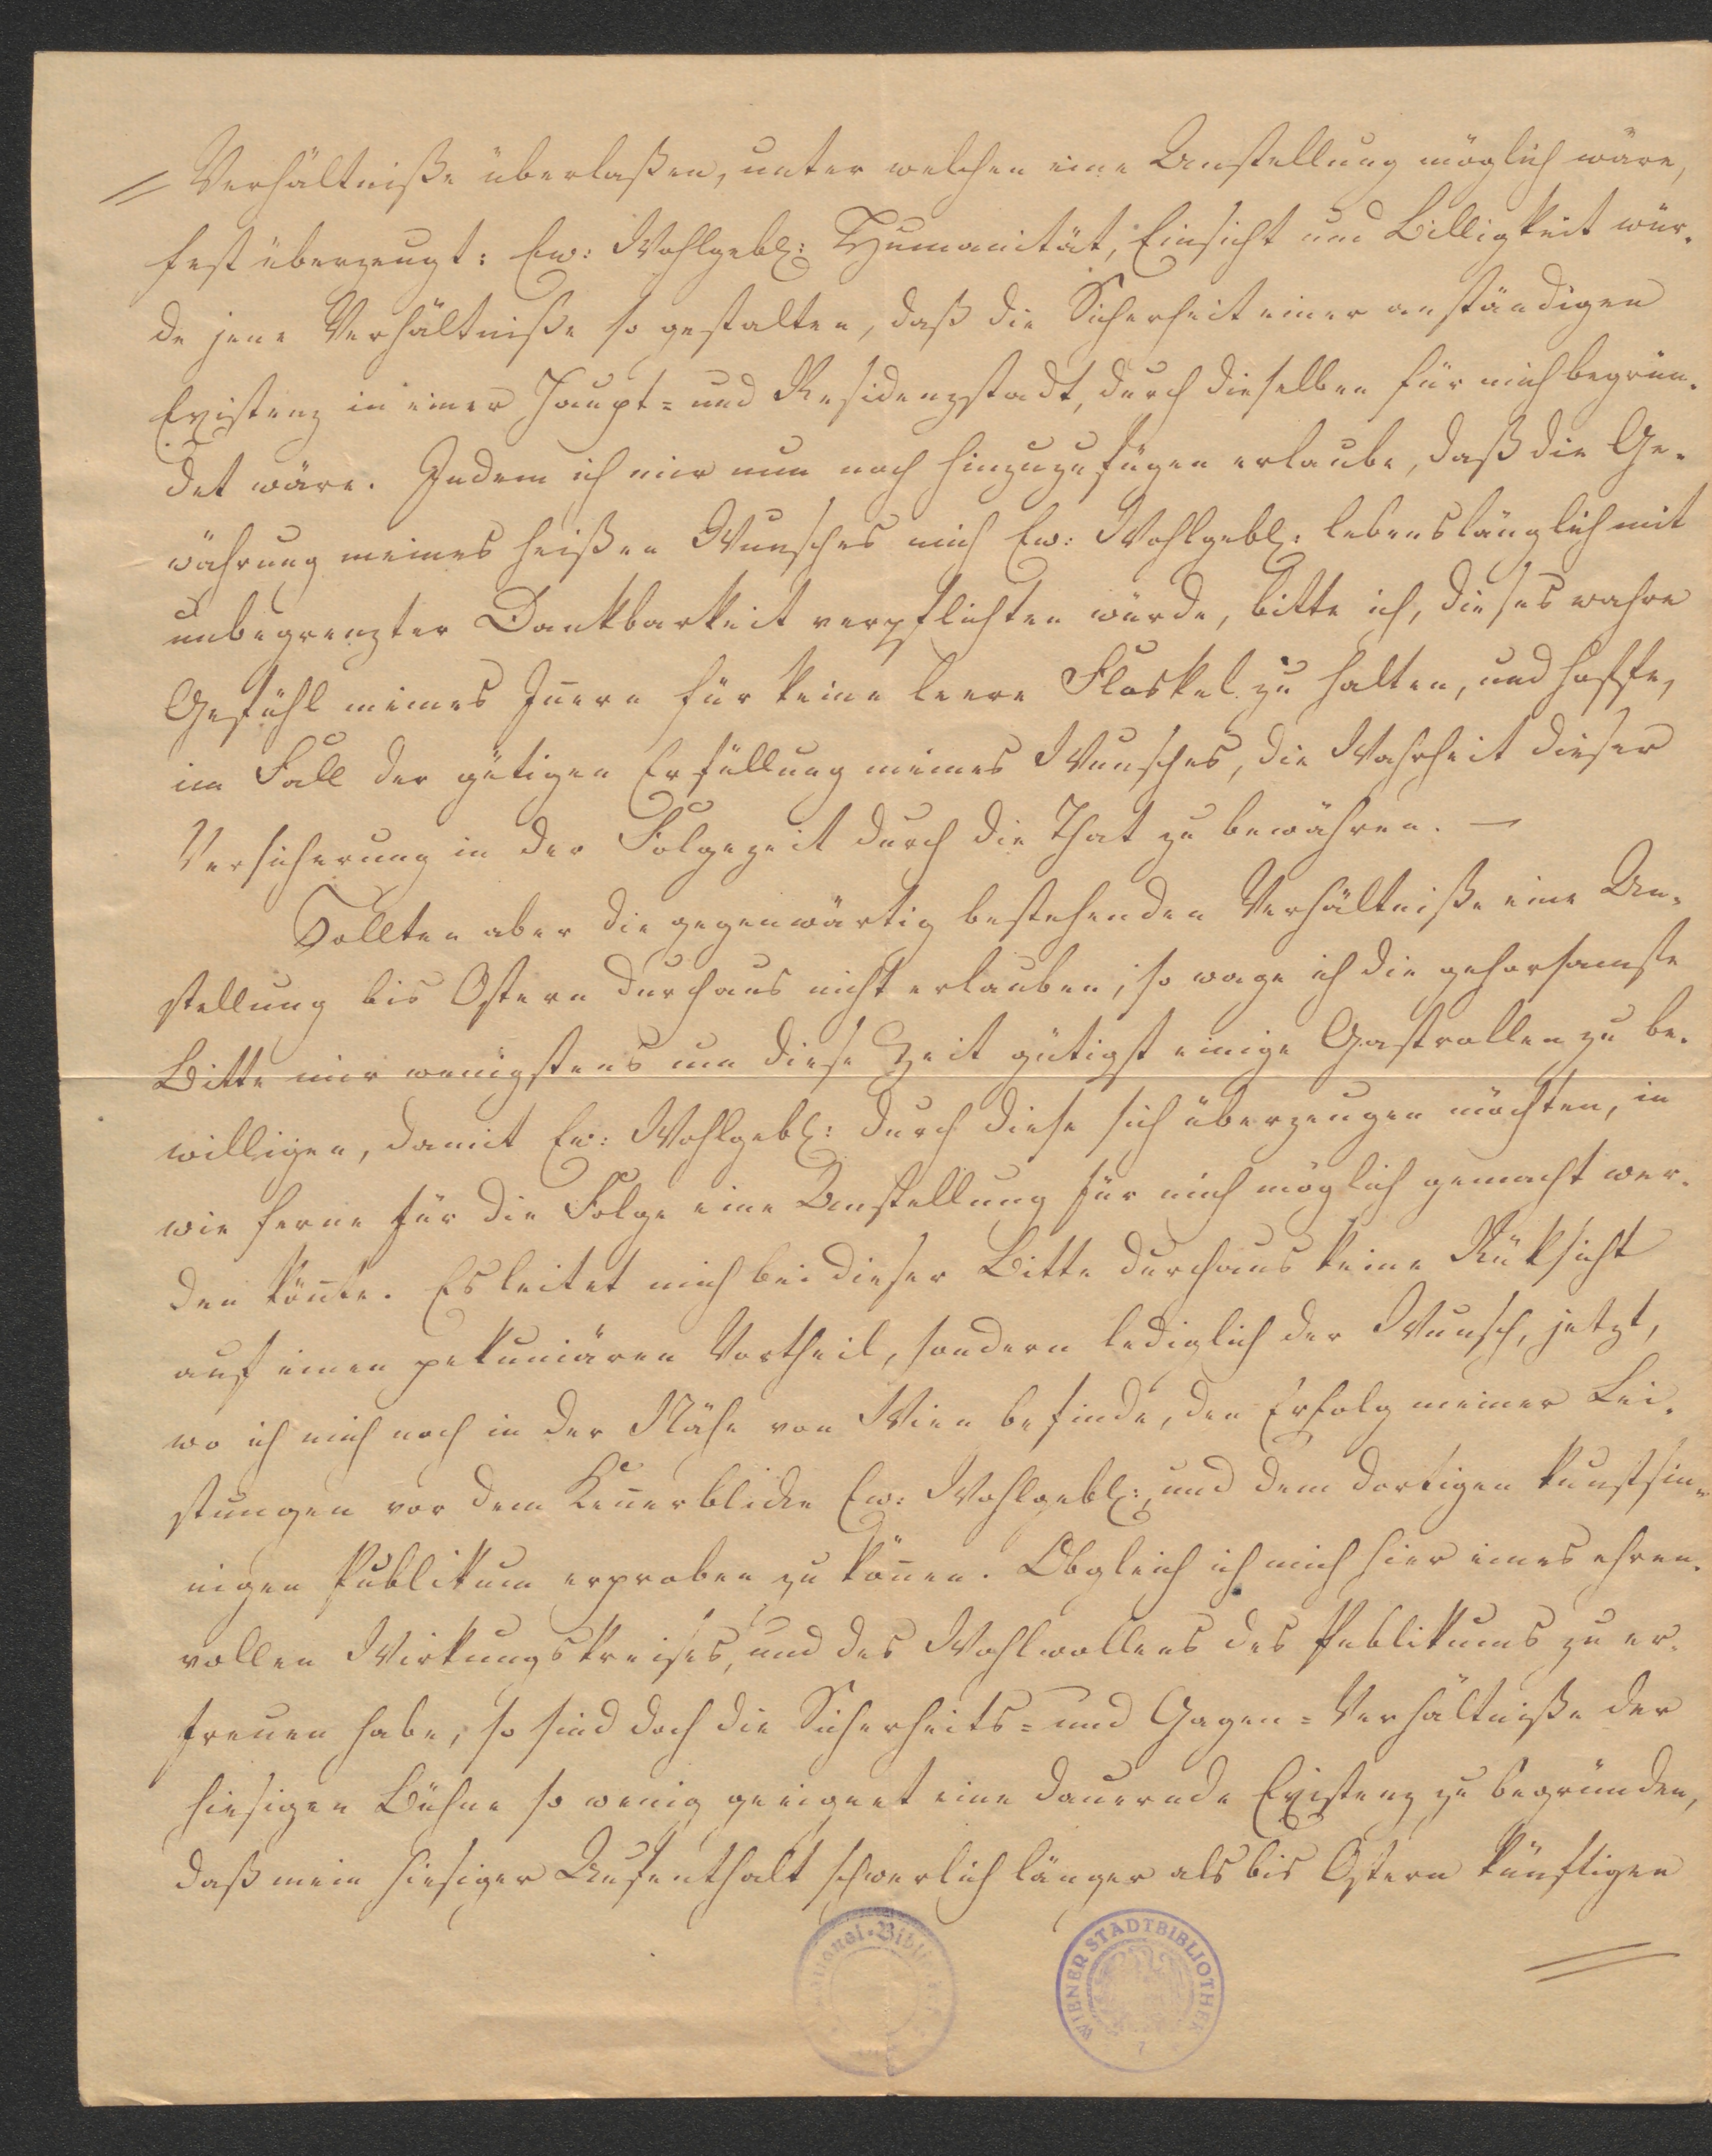 = Verhältniße überlaßen, unter welchen eine Anstellung möglich wäre,
fest überzeugt: Ew: Wohlgebl: Humanität, Einsicht und Billigkeit wür-
de jene Verhältniße so gestalten, daß die Sicherheit einer anständigen
Existenz in einer Haupt= und Residenzstadt, durch dieselben für mich begrün-
det wäre. Indem ich mir nun noch hinzuzufügen erlaube, daß die Ge-
währung meines heißen Wunsches mich Ew: Wohlgebl: lebenslänglich mit
unbegrenzter Dankbarkeit verpflichten würde, bitte ich, dieses wahre
Gefühl meines Iñern für keine leere Floskel zu halten, und hoffe,
im Fall der gütigen Erfüllung meines Wunsches, die Wahrheit dieser
Versicherung in der Folgezeit durch die That zu bewähren. —
Sollten aber die gegenwärtig bestehenden Verhältniße eine An-
stellung bis Ostern durchaus nicht erlauben, so wage ich die gehorsamste
Bitte mir wenigstens um diese Zeit gütigst einige Gastrollen zu be-
willigen, damit Ew: Wohlgebl: durch diese sich überzeugen möchten, in
wie ferne für die Folge eine Anstellung für mich möglich gemacht wer-
den köñte. Es leitet mich bei dieser Bitte durchaus keine Rüksicht
auf einen pekuniären Vortheil, sondern lediglich der Wunsch, jetzt,
wo ich mich noch in der Nähe von Wien befinde, den Erfolg meiner Lei-
stungen vor dem Keñerblicke Ew: Wohlgebl:, und dem dortigen kunstsin-
nigen Publikum erproben zu köñen. Obgleich ich mich hier eines ehren-
vollen Wirkungskreises, und des Wohlwollens des Publikums zu er-
freuen habe, so sind doch die Sicherheits= und Gagen=Verhältniße der
hiesigen Bühne so wenig geeignet eine dauernde Existenz zu begründen,
daß mein hiesiger Aufenthalt schwerlich länger als bis Ostern künftigen
=
WIENER STADTBIBLIOTHEK